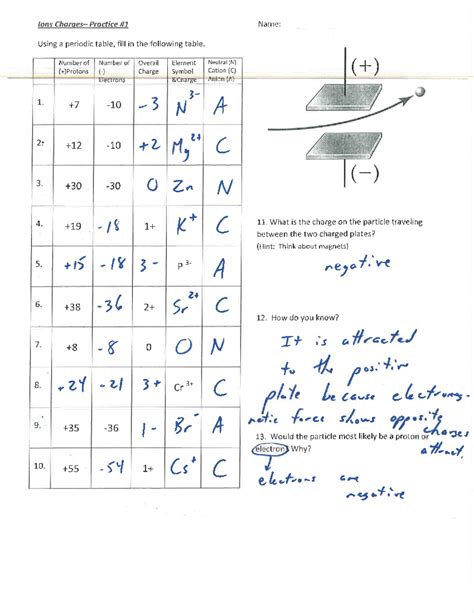 Ions Charges– Practice #1
Name:
Using a periodic table, fill in the following table.
Number of (+)Protons	Number of (-) Electrons	Overall Charge	Element Symbol &Charge	Neutral (N) Cation (C) Anion (A)
1.	+7	-10	-3	N3-	A
2.	+12	-10	+2	Mg2+	C
3.	+30	-30	0	Zn	N
4.	+19	-18	1+	K+	C
5.	+15	-18	3-	P 3-	A
6.	+38	-36	2+	Sr2+	C
7.	+8	-8	0	O	N
8.	+24	-21	3+	Cr 3+	C
9.	+35	-36	1-	Br-	A
10.	+55	-54	1+	Cs+	C
(+)
(−)
11. What is the charge on the particle traveling
between the two charged plates?
(Hint: Think about magnets)
negative
12. How do you know?
It is attracted
to the positive
plate because electromag-
netic force shows opposite
charges
attract.
13. Would the particle most likely be a proton or
electron? Why?
electrons are
negative